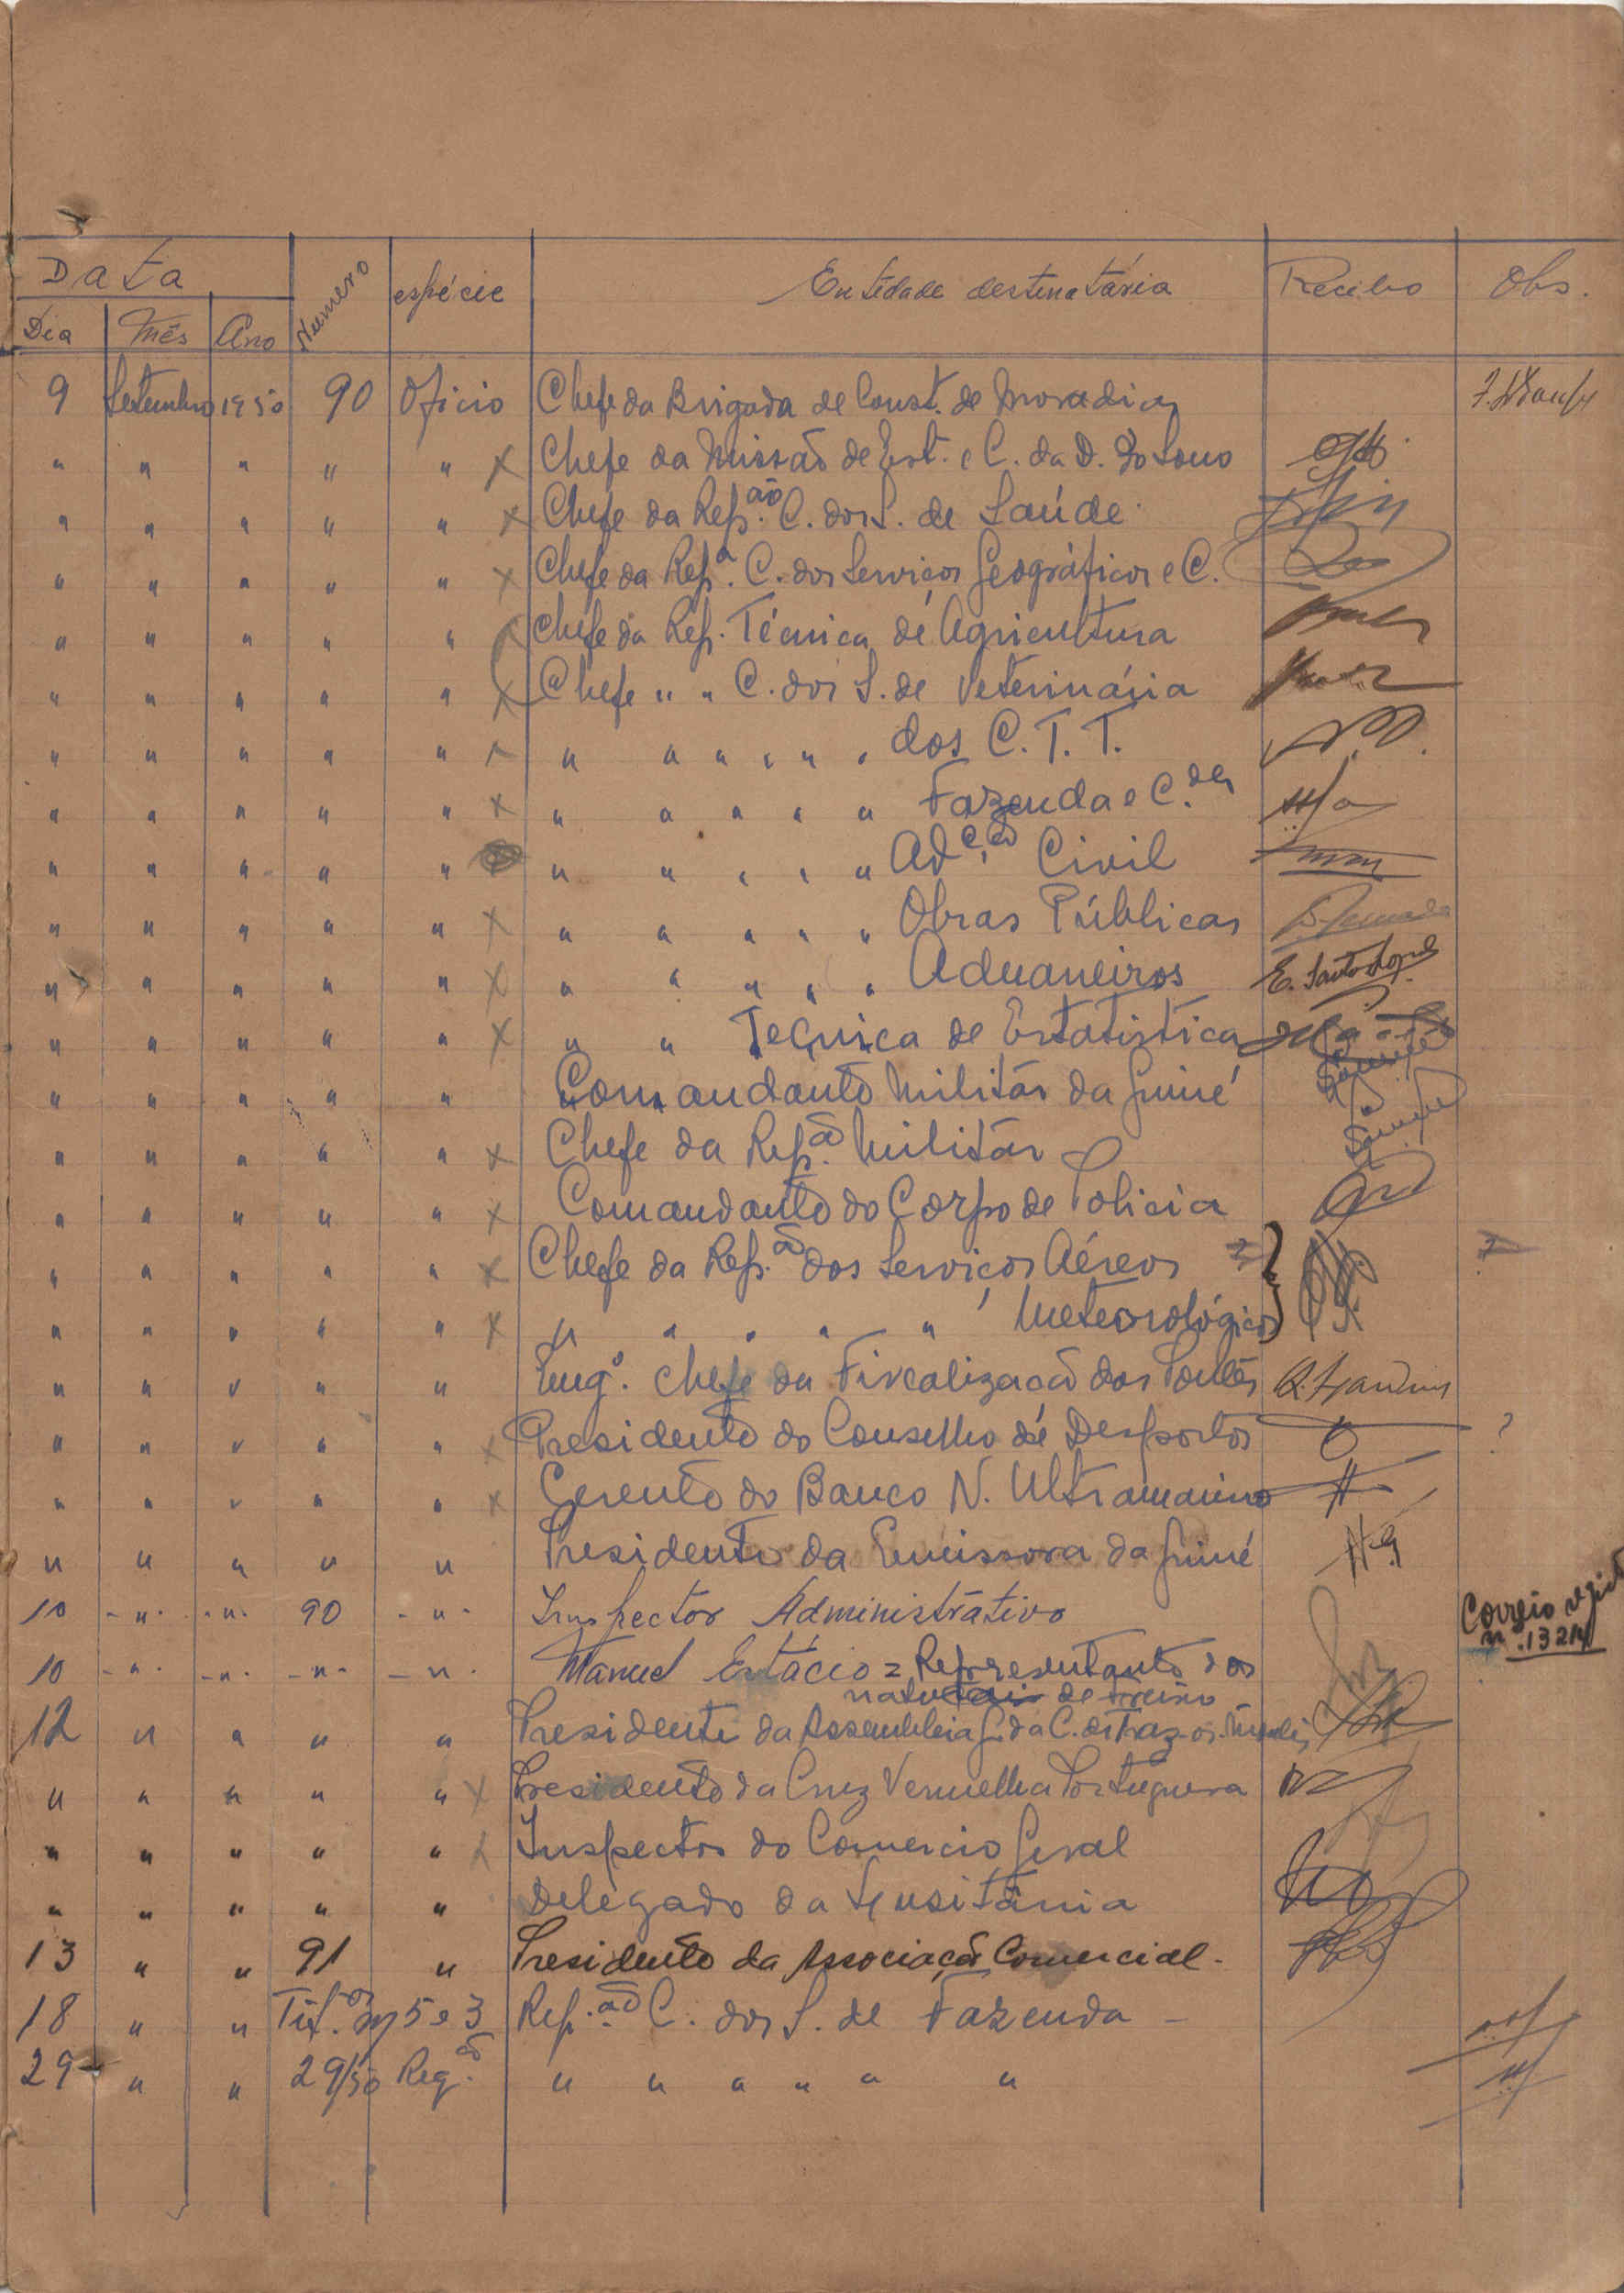 Data Numero espécie Entidade destinatária Recibo Obs.
Dia Mês Ano
9 Setembro 1950 90 Oficio Chefe da Brigada de Const. de Moradias
" " " " " x Chefe da Missão de Est. e C. da D. do Sono
" " " " " x Chefe da Rep.ão C. dos S. de Saúde
" " " " " x Chefe da Rep.a C. dos Serviços Geográficos e C.
" " " " " x Chefe da Rep. Técnica de Agricultura
" " " " " x Chefe " " C. dos S. de Veterinária
" " " " " x " " " " " " dos C. T. T.
" " " " " x " " " " " Fazenda e C.des
" " " " " " " " " " Ad.ção Civil
" " " " " x " " " " " Obras Públicas
" " " " " x " " " " " Aduaneiros E. Santos Lopes
" " " " " x " " Tecnica de Estatistica
" " " " " Comandante Militar da Guiné
" " " " " x Chefe da Rep.ão Militar
" " " " " x Comandante do Corpo de Policia
" " " " " x Chefe da Rep.ão dos Serviços Aéreos ? ?
" " " " " x " " " " " Meteorológicos
" " " " " Eng.o Chefe da Fiscalização das Pontes
" " " " " x Presidente do Conselho de Desportos ?
" " " " " x Gerente do Banco N. Ultramarino
" " " " " Presidente da Emissora da Guiné
10 -"- -"- 90 -"- Inspector Administrativo Correio n. 1321
10 -"- -"- -"- -"- Manuel Estácio = Representante dos
naturais de
12 " " " " Presidente da Assembleia G. da C. de Traz-os-Montes
" " " " " x Presidente da Cruz Vermelha Portuguesa
" " " " " x Inspector do Comercio Geral
" " " " " Delegado da Lusitânia
13 " " 91 " Presidente da Associação Comercial.
18 " " Tit.os M/5 e 3 Rep.ão C. dos S. de Fazenda -
29 " " 29/50 Req.ão " " " " " "